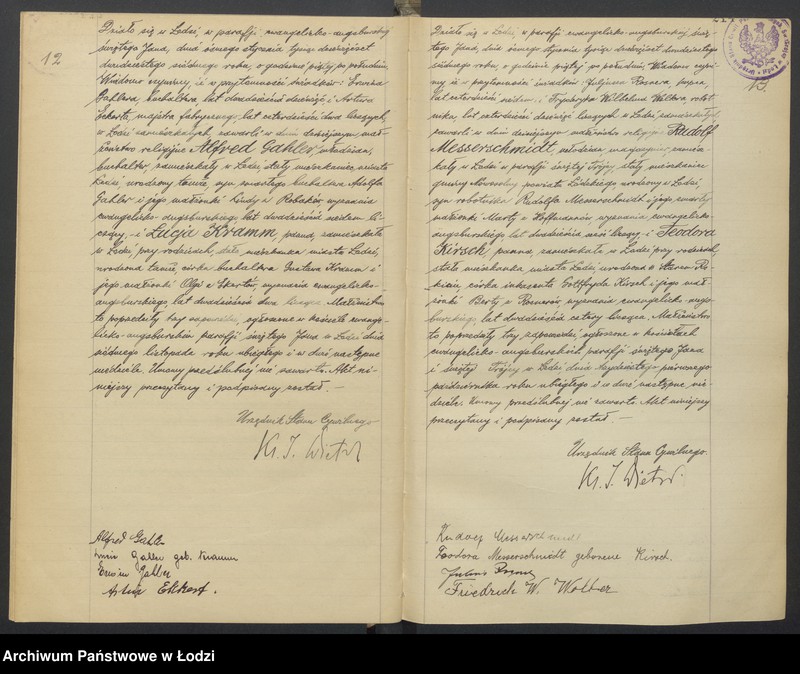 12
Działo się w Łodzi, w parafji ewangelicko-augsburskiej
świętego Jana, dnia ósmego stycznia tysiąc dziewięćset
dwudziestego siódmego roku, o godzinie piątej po południu.
Wiadomo czynimy, że w przytomności świadków: Erwina
Gahlera, buchaltera, lat dwadzieścia dziewięć i Artura
Ekkerta, majstra fabrycznego, lat czterdzieści dwa liczących,
w Łodzi zamieszkałych, zawarli w dniu dzisiejszym mał-
żeństwo religijne Alfred Gahler, młodzian,
buchalter, zamieszkały w Łodzi, stały mieszkaniec miasta
Łodzi, urodzony tamże, syn zmarłego buchaltera Adolfa
Gahler i jego małżonki Lindy z Robaków, wyznania
ewangelicko-augsburskiego, lat dwadzieścia siedem li-
czący, i Łucja Kramm, panna, zamieszkała
w Łodzi, przy rodzicach, stała mieszkanka miasta Łodzi,
urodzona tamże, córka buchaltera Gustawa Kramm i
jego małżonki Olgi z Ekertów, wyznania ewangelicko-
augsburskiego, lat dwadzieścia dwa licząca. Małżeństwo
to poprzedziły trzy zapowiedzi, ogłoszone w kościele ewange-
licko-augsburskim parafji świętego Jana w Łodzi dnia
siódmego listopada roku ubiegłego i w dwie następne
niedziele. Umowy przedślubnej nie zawarto. Akt ni-
niejszy przeczytany i podpisany został. —
Urzędnik Stanu Cywilnego
Ks. J. Dietrich
Alfred Gahler
Gahler geb. Kramm
Erwin Gahler
Artur Ekkert.
13.
Działo się w Łodzi, w parafji ewangelicko-augsburskiej świę-
tego Jana, dnia ósmego stycznia tysiąc dziewięćset dwudziestego
siódmego roku, o godzinie piątej po południu. Wiadomo czyni-
my, że w przytomności świadków: Juljusza
lat czterdzieści siedem i Fryderyka Wilhelma Woltera robot-
nika, lat czterdzieści pięć liczących w Łodzi zamieszkałych,
zawarli w dniu dzisiejszym małżeństwo religijne Rudolf
Messerschmidt, młodzian, zamiesz-
kały w Łodzi w parafji świętej Trójcy, stały mieszkaniec
gminy Nowosolna powiatu Łódzkiego urodzony w Łodzi,
syn robotnika Rudolfa Messerschmidt i jego zmarłej
małżonki Marty z Hoffmanów wyznania ewangelicko-
augsburskiego, lat dwadzieścia sześć liczący, i Teodora
Kirsch, panna, zamieszkała w Łodzi przy rodzicach,
stała mieszkanka miasta Łodzi, urodzona w Starem Ro-
kiciu, córka inkasenta Gottfryda Kirsch i jego mał-
żonki Berty z wyznania ewangelicko-augs-
burskiego, lat dwadzieścia cztery licząca. Małżeństwo
to poprzedziły trzy zapowiedzi ogłoszone w kościołach
ewangelicko-augsburskich parafji świętego Jana
i świętej Trójcy w Łodzi dnia trzydziestego pierwszego
października roku ubiegłego i w dwie następne nie-
dziele. Umowy przedślubnej nie zawarto. Akt niniejszy
przeczytany i podpisany został. —
Urzędnik Stanu Cywilnego.
Ks. J. Dietrich
Rudolf Messerschmidt
Teodora Messerschmidt geborene Kirsch.
Julius
Friedrich W. Wolter
Archiwum Państwowe w Łodzi